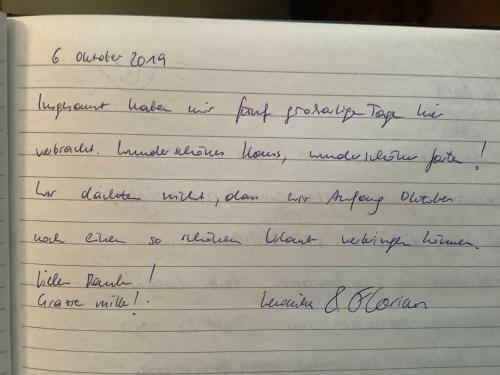 6. Oktober 2019
Insgesamt haben wir fünf großartige Tage hier
verbracht. Wunderschönes Haus, wunderschöner Garten!
Wir dachten nicht, dass wir Anfang Oktober
noch einen so schönen Urlaub verbringen können.
Vielen Dank!
Grazie mille! Veronika & Florian